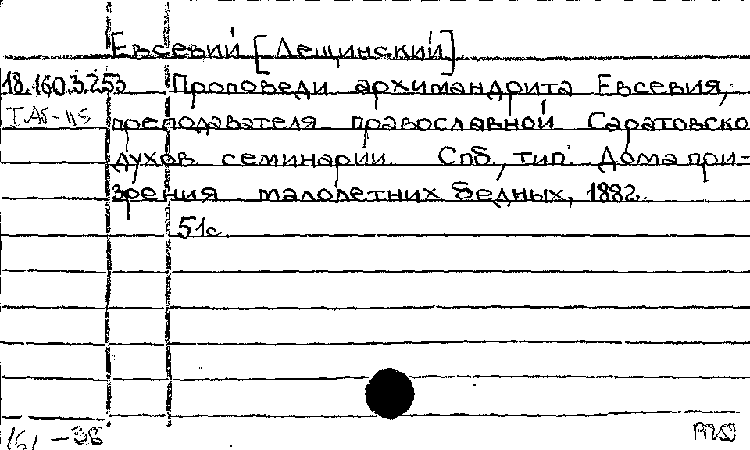 Евсевий [Лещинский]
18.160.3.253 Проповеди архимандрита Евсевия,
преподавателя православной Саратовско
духов. семинарии. Спб., тип. Дома при-
зрения малолетних бедных, 1882.
51с.